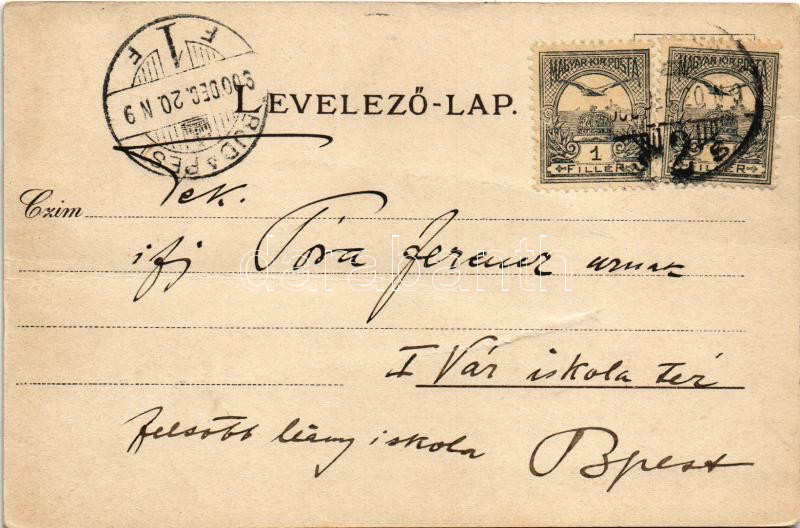 LEVELEZŐ-LAP.
F 1 F
900 DEC. 20. N 9
BUDAPEST
MAGYAR·KIR·POSTA
1
FILLÉR
MAGYAR·KIR·POSTA
FILLÉR
Czim
Tek.
ifj Póra Ferencz urnak
I Vár iskola tér
felsőbb leány iskola
Bpest
darabanth